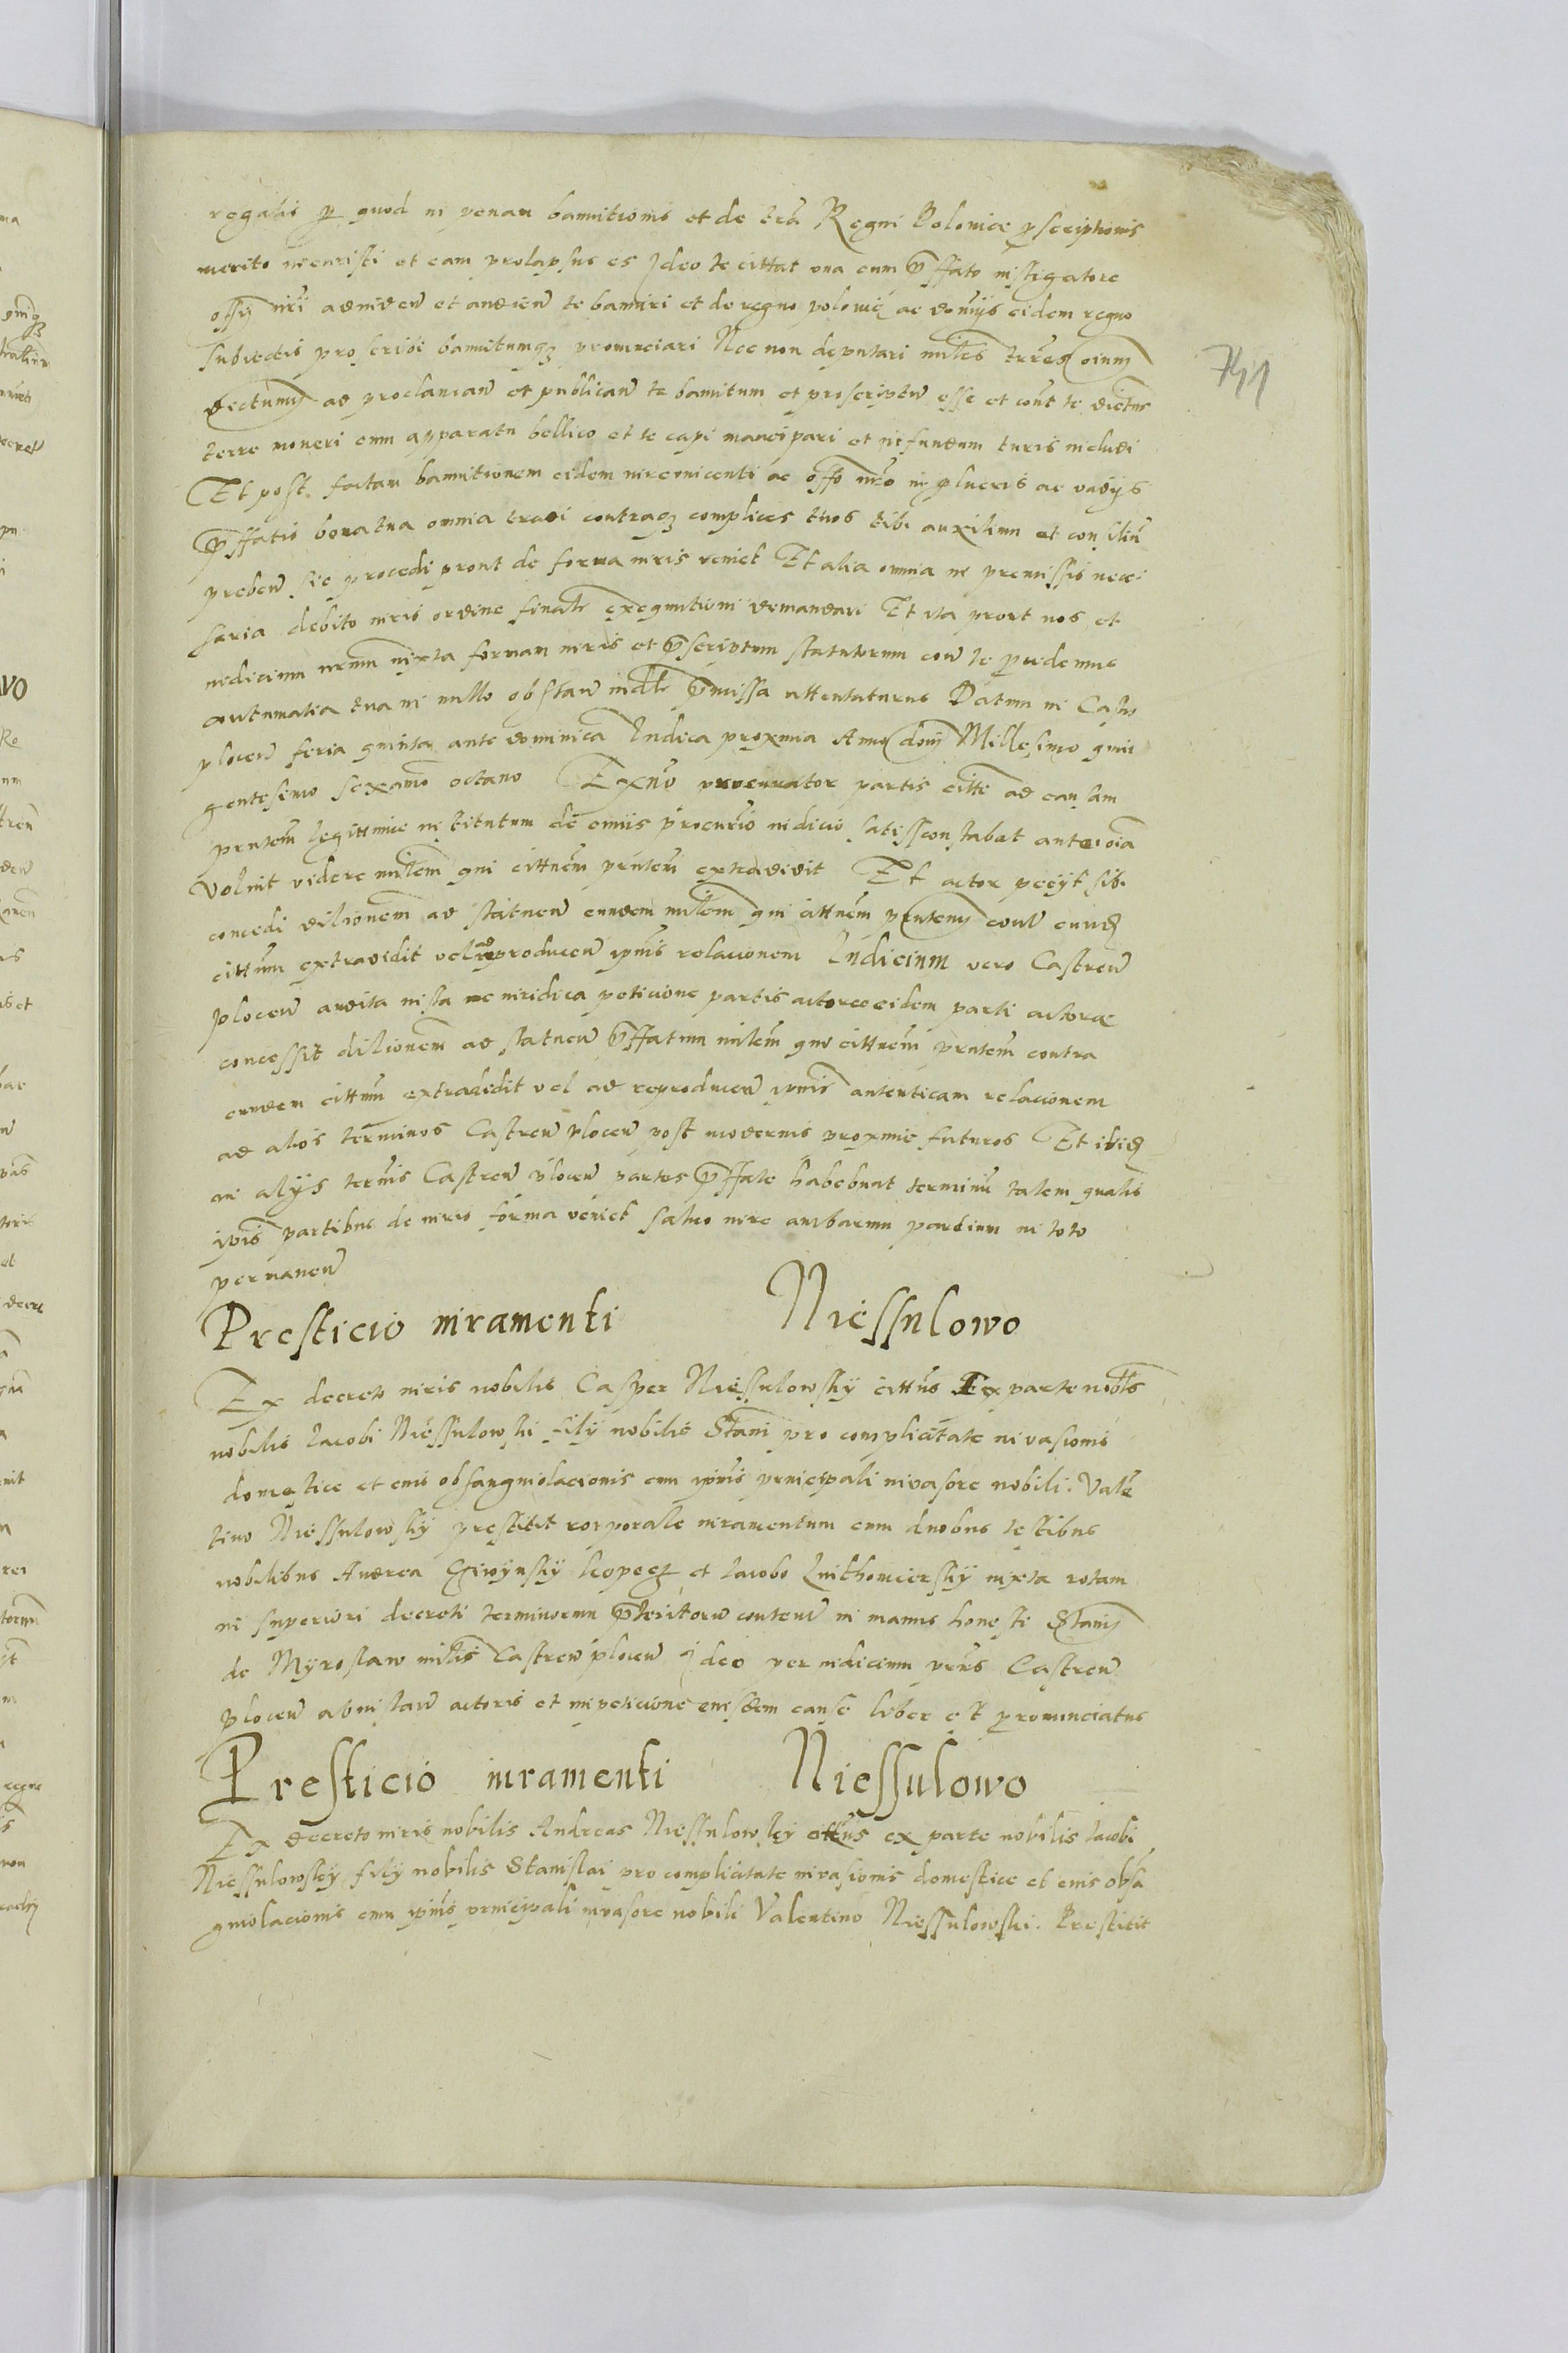 regalis p quod in penam bannitionis et de tra Regni Poloniae pscriptionis
merito incuristi et eam prolapsus es Ideo te cittat una cum pffato instigatore
offy nri adviden et audien te banniri et de regno polonie ac domiys eidem regno
subiectis proscribi bannitumq pronunciari Nec non deputari miltes terres oium
dictum ad proclaman et publican te bannitum et proscriptu esse et cont te dictus
terre moneri cum apparatu bellico et te capi mancipari et in fundum turis includi
Et post factam bannitionem eidem iurevincenti ac offo nro in plucris ac vadys
pffatis bona tua omnia tradi contraq complices tuos tibi auxilium et consiliu
preben sic procedi prout de forma iuris veniet Et alia omnia in premissis nece
saria debito iuris ordine finalr exequutioni demandari Et ita prout nos et
iudicium nrum iuxta formam iuris et pscriptum statutorum con te pcedemus
contumatia tua in nullo obstan indr pmissa attentaturus Datum in Castro
plocen feria quinta ante dominica Iudica proxima Anno dom Millesimo quin
gentesimo sexamo octavo Exnuo procurator partis citte ad causam
prntem legittime institutum de cuius procurio iudicio satisconstabat ante oia
voluit videre miltem qui cittnem prntem extradidit Et actor peiyt sibi
concedi dilionem ad statuen eundem miltem qui cittnem prntem cont eund
cittum extradidit vel ad reproducen ipius relacionem Iudicium vero Castren
plocen audita iusta ac iuridica peticione partis actoree eidem parti actorae
concessit dilionem ad statuen pffatum miltem qui cittnem prntem contra
eundem cittum extradidit vel ad reproducen ipius autenticam relacionem
ad alios terminos Castren plocen post modernis proxime futuros Et ibid
in alys termis Castren plocen partes pffate habebunt terminu talem qualis
ipis partibus de iuris forma veniet salvo iure ambarum parcium in toto
permanen
Presticio iuramenti Niessulowo
Ex decreto iuris nobilis Casper Niessulowsky cittus Ex parte nobls
nobilis Iacobi Niessulowski fily nobilis Stani pro complicitate invasionis
domestice et eius obsanguiolacionis cum ipius principali invasore nobili Valen
tino Niessulowsky prestitit corporale iuramentum cum duobus testibus
nobilibus Andrea Giwynsky kopecz et Iacobo Luthomiersky iuxta rotam
in superiori decreti terminorum pteritoru conten in manus honesti Stani
de Myroslaw miltis Castren plocen Ideo per iudicium prns Castren
plocen abinstan actoris et impeticione eiusdem cause liber est pronunciatus
Presticio iuramenti Niessulowo
Ex decreto iuris nobilis Andreas Niessulowsky cittus ex parte nobilis Iacobi
Niessulowsky fily nobilis Stanislai pro complicitate invasionis domestice et eius obsa
guiolacionis cum ipius principali invasore nobili Valentino Niessulowski. Prestitit